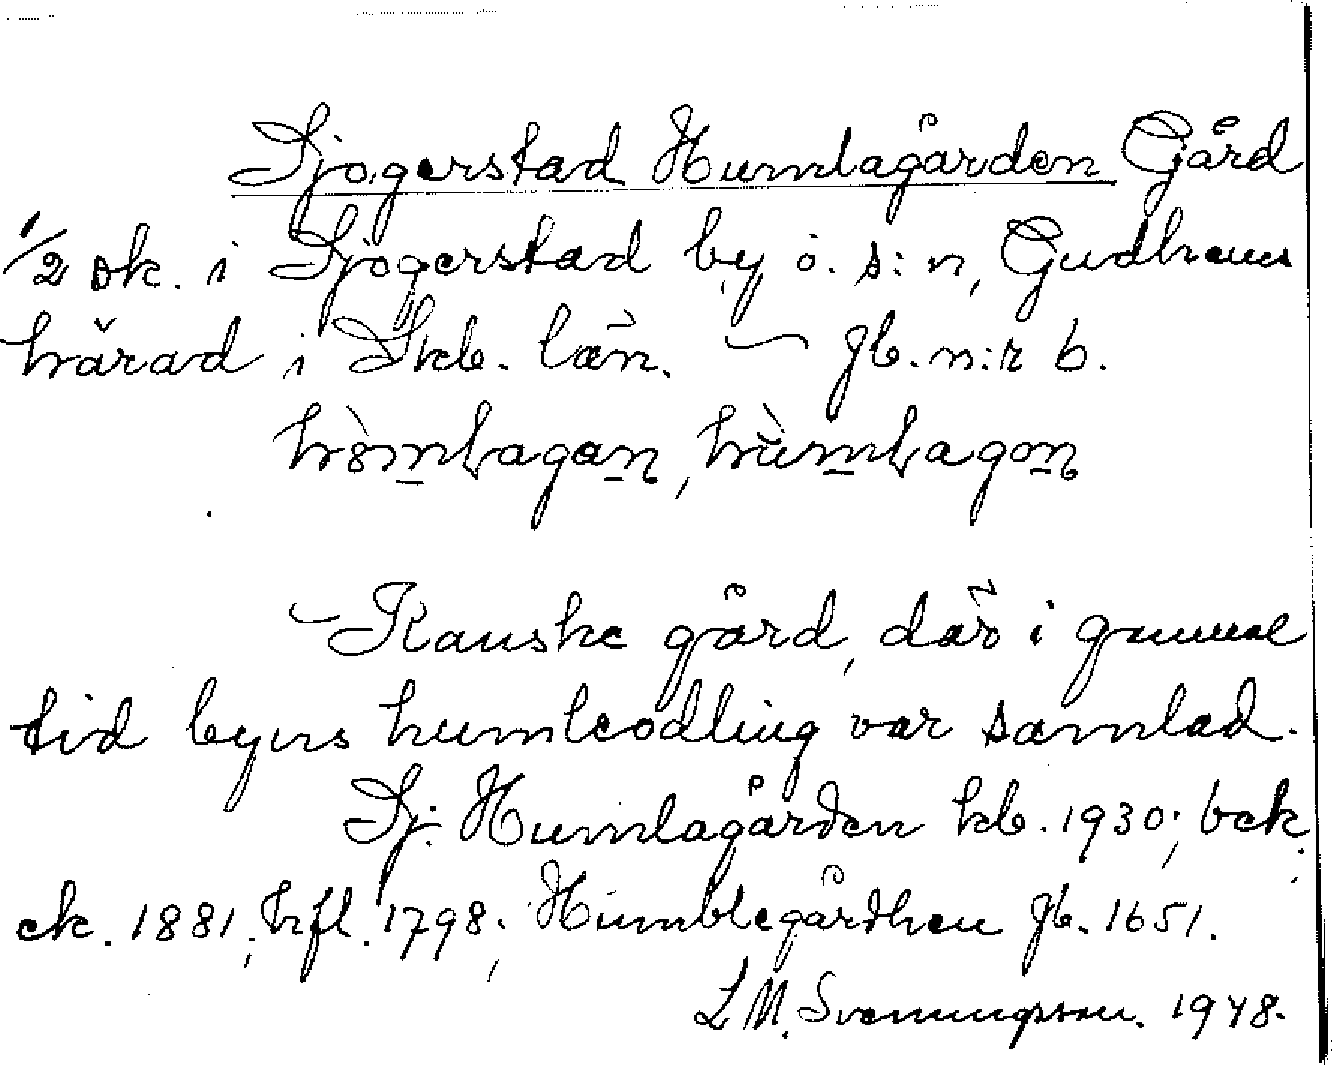 Sjogerstad Humlagården Gård
1/2 sk. i Sjogerstad by, ö. s:n, Gudhems
härad i Skb. län. — Jb. n:r 6.
hòmlagan, hùmlagon
— Kanske gård, där i gammal
tid byns humleodling var samlad.
Sj. Humlagården kb. 1930; bek.
ek. 1881; hfl. 1798; Humblegårdhen Jb. 1651.
L M. Svenungsson. 1948.